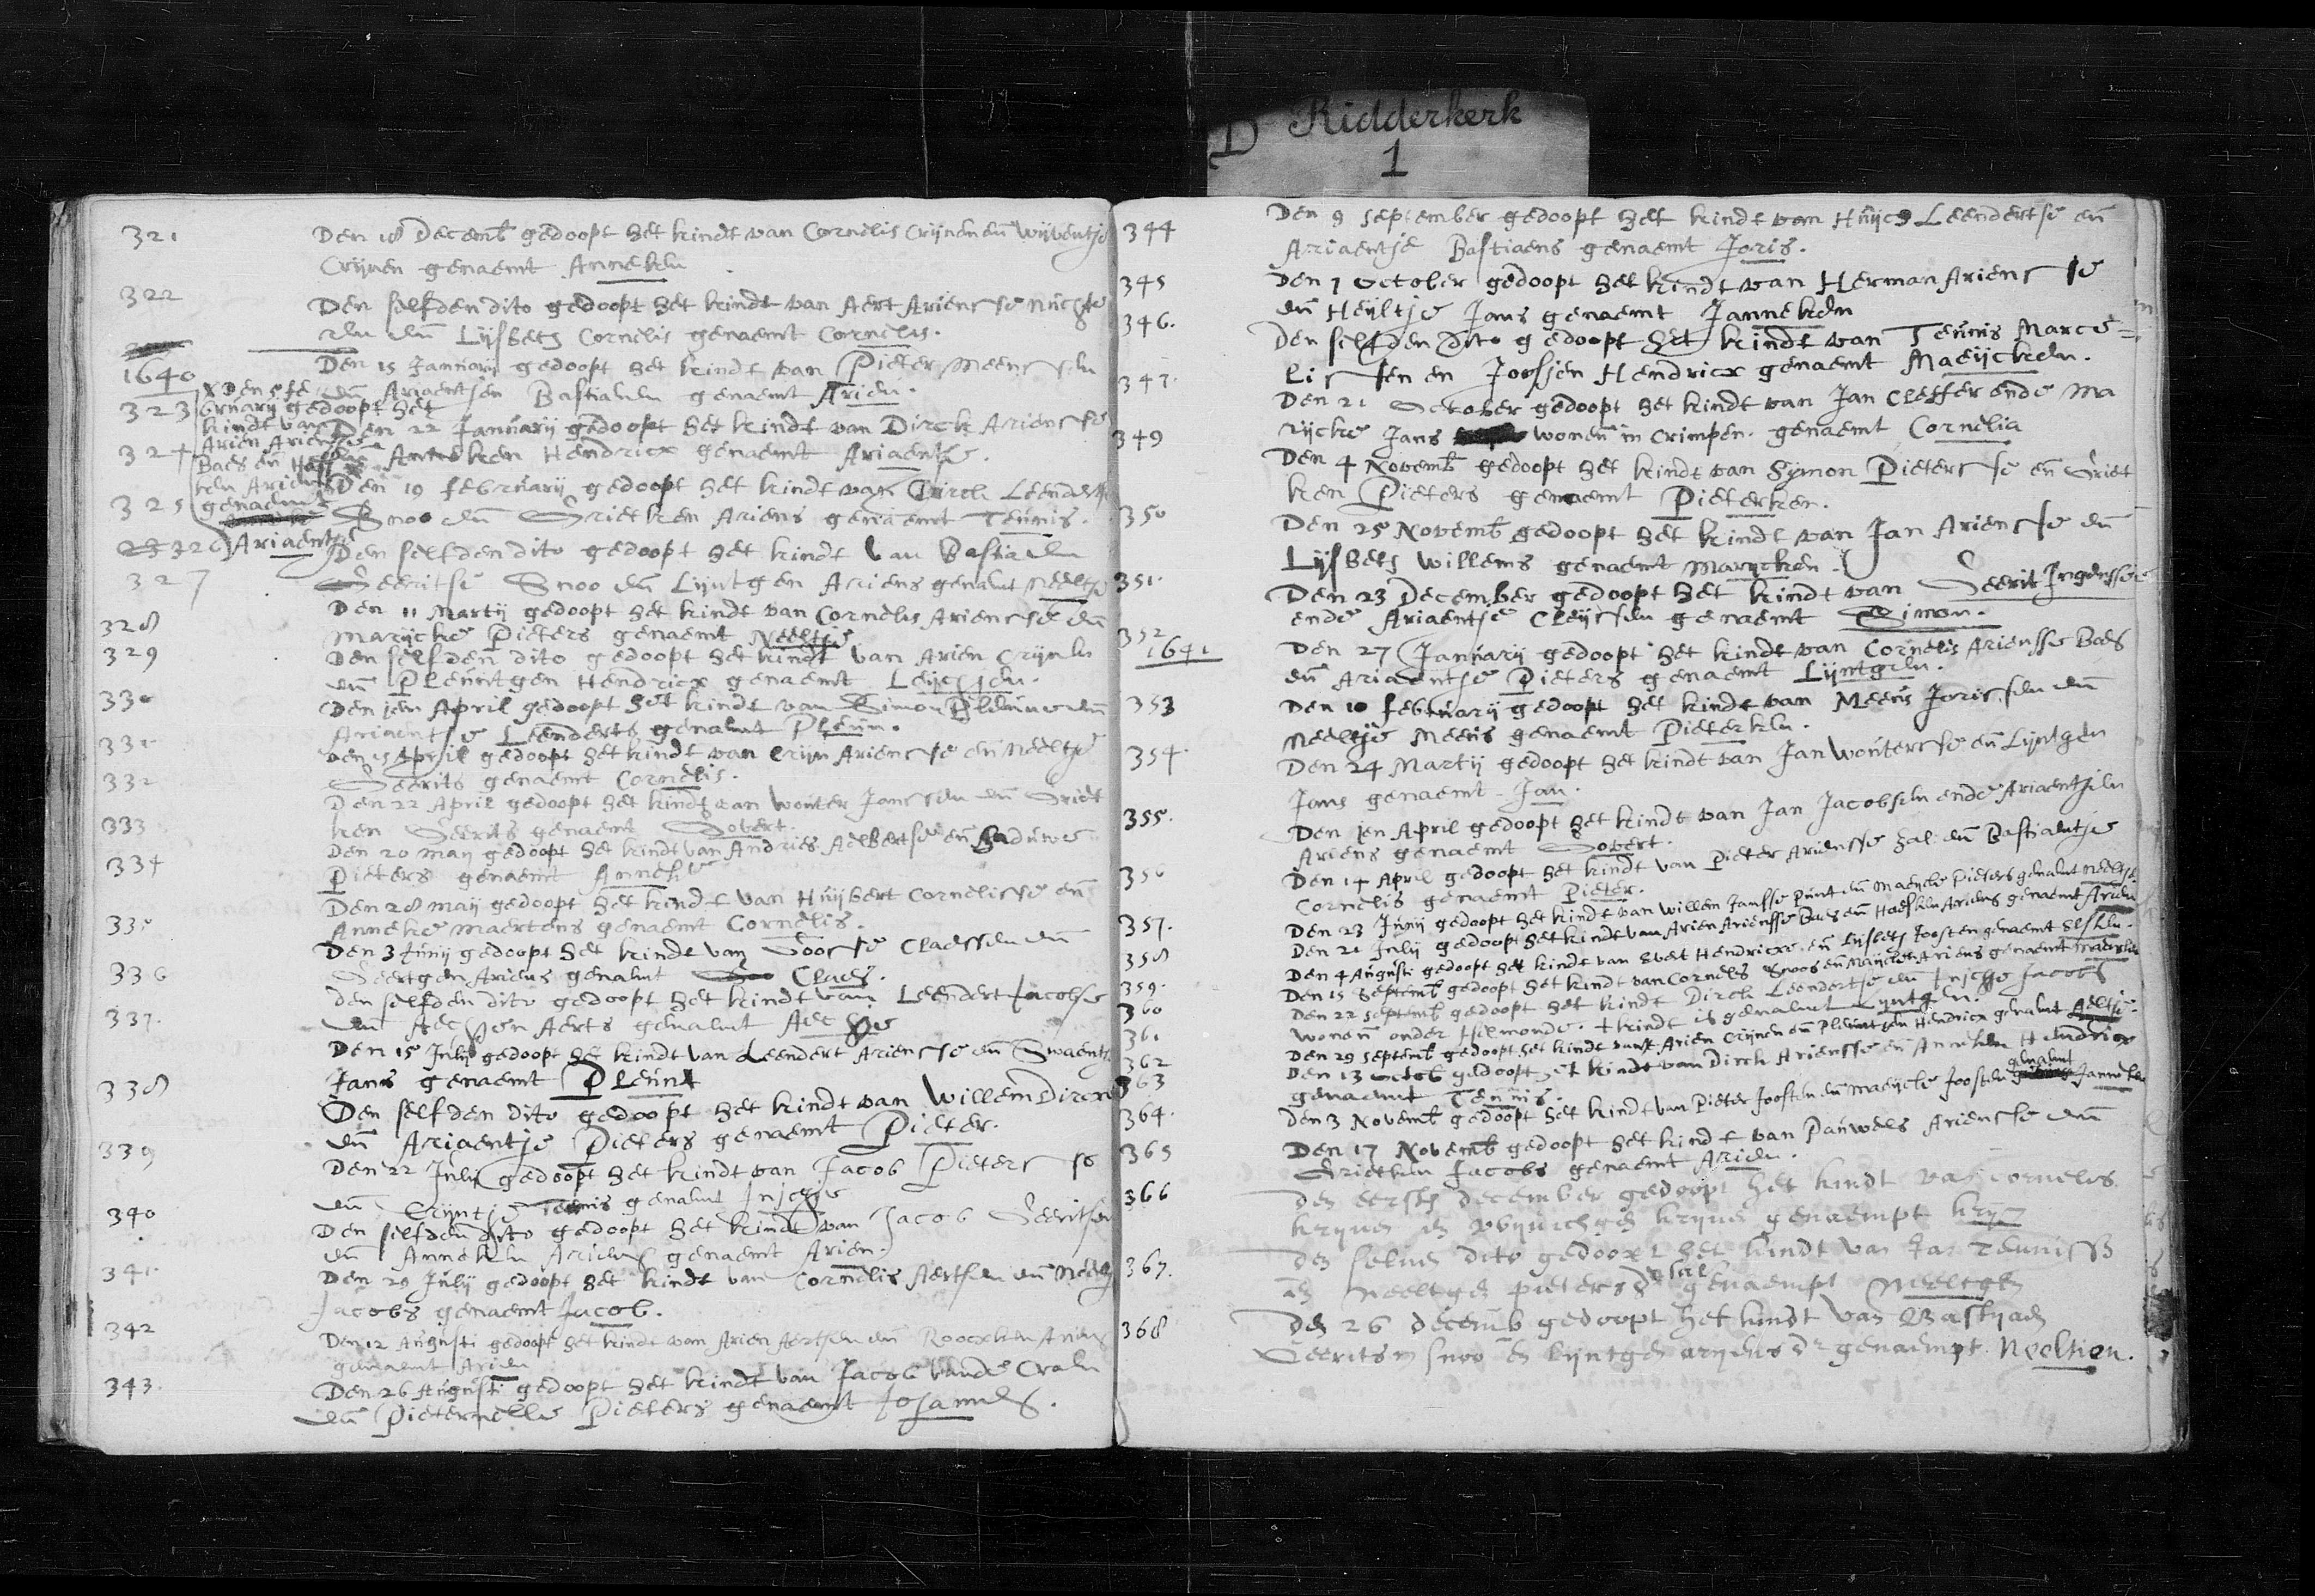 D Ridderkerk
1
321 Den 18 Decemb gedoopt het kindt van Cornelis Crijnen eñ Wijventje
Crijnen genaemt Anneken
322 Den selfden dito gedoopt het kindt van Aert Ariensse
eñ Lijsbeth Cornelis genaemt Cornelis.
1640 Den 15 Januarij gedoopt het kindt van Pieter Meenssen
323 eñ Ariaentjen Bastiaens genaemt Arien.
Den 22 Januarij gedoopt het kindt van Dirck Ariensse
324 Anneken Hendricx genaemt Ariaentje.
x Den 5 fe
bruarij gedoopt het
kindt van
Arien Ariensse
Baes eñ
ken Ariens
genaemt
Ariaentje
Den 19 februarij gedoopt het kindt van Dirck Leendertse
325 Snoo eñ Grietken Ariens genaemt Teunis.
326 Den selfden dito gedoopt het kindt van Bastiaen
327 Geeritse Snoo eñ Lijntgen Ariens genaemt Neeltje
Den 11 Martij gedoopt het kindt van Cornelis Ariensse eñ
328 Marijcke Pieters genaemt Neeltje
329 Den selfden dito gedoopt het kindt van Arien Crijnen
eñ Pleuntgen Hendricx genaemt
330 Den jen April gedoopt het kindt van Simon eñ
Ariaentje Leenderts genaemt Pleun.
331 Den 15 April gedoopt het kindt van Crijn Ariensse en Neeltje
332 Geerits genaemt Cornelis.
Den 22 April gedoopt het kindt van Wouter Janssen eñ Griet
333 ken Geerits genaemt Govert.
Den 20 Maij gedoopt het kindt van Andries Aelbertse eñ
334 Pieters genaemt Anneke
Den 28 Maij gedoopt het kindt van Huijbert Cornelisse eñ
335 Anneke Maertens genaemt Cornelis.
Den 3 Junij gedoopt het kindt van Goosse Claessen eñ
336 Geertgen Ariens genaemt Claes.
den selfden dito gedoopt het kindt van Leendert Jacobse
337. eñ Aechjen Aerts genaemt Aechje
Den 15 Julij gedoopt het kindt van Leendert Ariensse eñ Swaentje
Jans genaemt Pleunt
338 Den selfden dito gedoopt het kindt van Willem Dircx
eñ Ariaentje Pieters genaemt Pieter.
339 Den 22 Julij gedoopt het kindt van Jacob Pieterse
eñ Crijntje Teunis genaemt Injchje
340 Den selfden dito gedoopt het kindt van Jacob Geeritsen
eñ Anneken Ariens genaemt Arien.
341. Den 29 Julij gedoopt het kindt van Cornelis Aertsen eñ Neeltje
Jacobs genaemt Jacob.
342 Den 12 Augusti gedoopt het kindt van Arien Aertsen eñ Roockken Ariens
genaemt Arien
343. Den 26 Augusti gedoopt het kindt van Jacob vande Craen
eñ Pieternelle Pieters genaemt Johannes.
344 Den 9 September gedoopt het kindt van Huijch Leendertse eñ
Ariaentje Bastiaens genaemt Joris.
345 Den 7 October gedoopt het kindt van Herman Ariensse
eñ Heijltje Jans genaemt Janneken
346. Den selfden Dito gedoopt het kindt van Teunis Marce=
lissen en Joosjen Hendricx genaemt Maeijcken.
347. Den 21 October gedoopt het kindt van Jan Cleffer ende Ma
rijcke Jans woneñ in Crimpen. genaemt Cornelia
349 Den 4 Novemb gedoopt het kindt van Sijmon Pieterse eñ Griet
ken Pieters genaemt Pieterken.
350 Den 25 Novemb gedoopt het kindt van Jan Ariensse eñ
Lijsbeth Willems genaemt Marijcken.
351. Den 23 December gedoopt het kindt van Geerit Ingensse
ende Ariaentje Cleijssen genaemt Simon.
352
1641 Den 27 Januarij gedoopt het kindt van Cornelis Ariensse Baes
eñ Ariaentje Pieters genaemt Lijntgen.
353 Den 10 februarij gedoopt het kindt van Meeus Jorissen eñ
Neeltje Meeus genaemt Pieterken.
354. Den 24 Martij gedoopt het kindt van Jan Wouterse eñ Lijntgen
Jans genaemt Jan.
355. Den jen April gedoopt het kindt van Jan Jacobsen ende Ariaentjen
Ariens genaemt Govert.
Den 14 April gedoopt het kindt van Pieter Ariensse zal. eñ Bastiaentje
356 Cornelis genaemt Pieter.
Den 23 Junij gedoopt het kindt van Willem Jansse Punt eñ Maeijcke Pieters genaemt Neeltje
357. Den 21 Julij gedoopt het kindt van Arien Ariensse Baes eñ Ariens genaemt Arien
358 Den 4 Augusti gedoopt het kindt van Evert Hendricxe eñ Lijsbeth Joosten genaemt Elsken.
359. Den 15 Septemb gedoopt het kindt van Cornelis Snoo eñ Maijcken Ariens genaemt
360 Den 22 Septemb gedoopt het kindt Dirck Leendertse eñ Injchje Jacobs
woneñ onder Iselmonde. + kindt is genaemt Lijntgen.
361 Den 29 Septemb gedoopt het kindt van Arien Crijnen eñ Pleuntgen Hendricx genaemt Aeltje.
362 Den 13 Octob gedoopt het kindt van Dirck Ariensse eñ Anneken Hendricx
363 genaemt Teunis.
364. Den 3 Novemb gedoopt het kindt van Pieter Joosten eñ Maeijcke Joosten genaemt Janneken
365 Den 17 Novemb gedoopt het kindt van Pauwels Ariensse eñ
Grietken Jacobs genaemt Arien.
366 den eersten december gedoopt het kindt van cornelis
krijnen en krijnen genaempt krijn
367. den selven dito gedoopt het kindt van Jan Teunisse
en Neeltgen pieters dr genaempt Neeltgen
368 den 26 decemb gedoopt het kindt van Bastyaen
Geeritsen snoo en lijntgen arijens dr genaempt Neeltien.